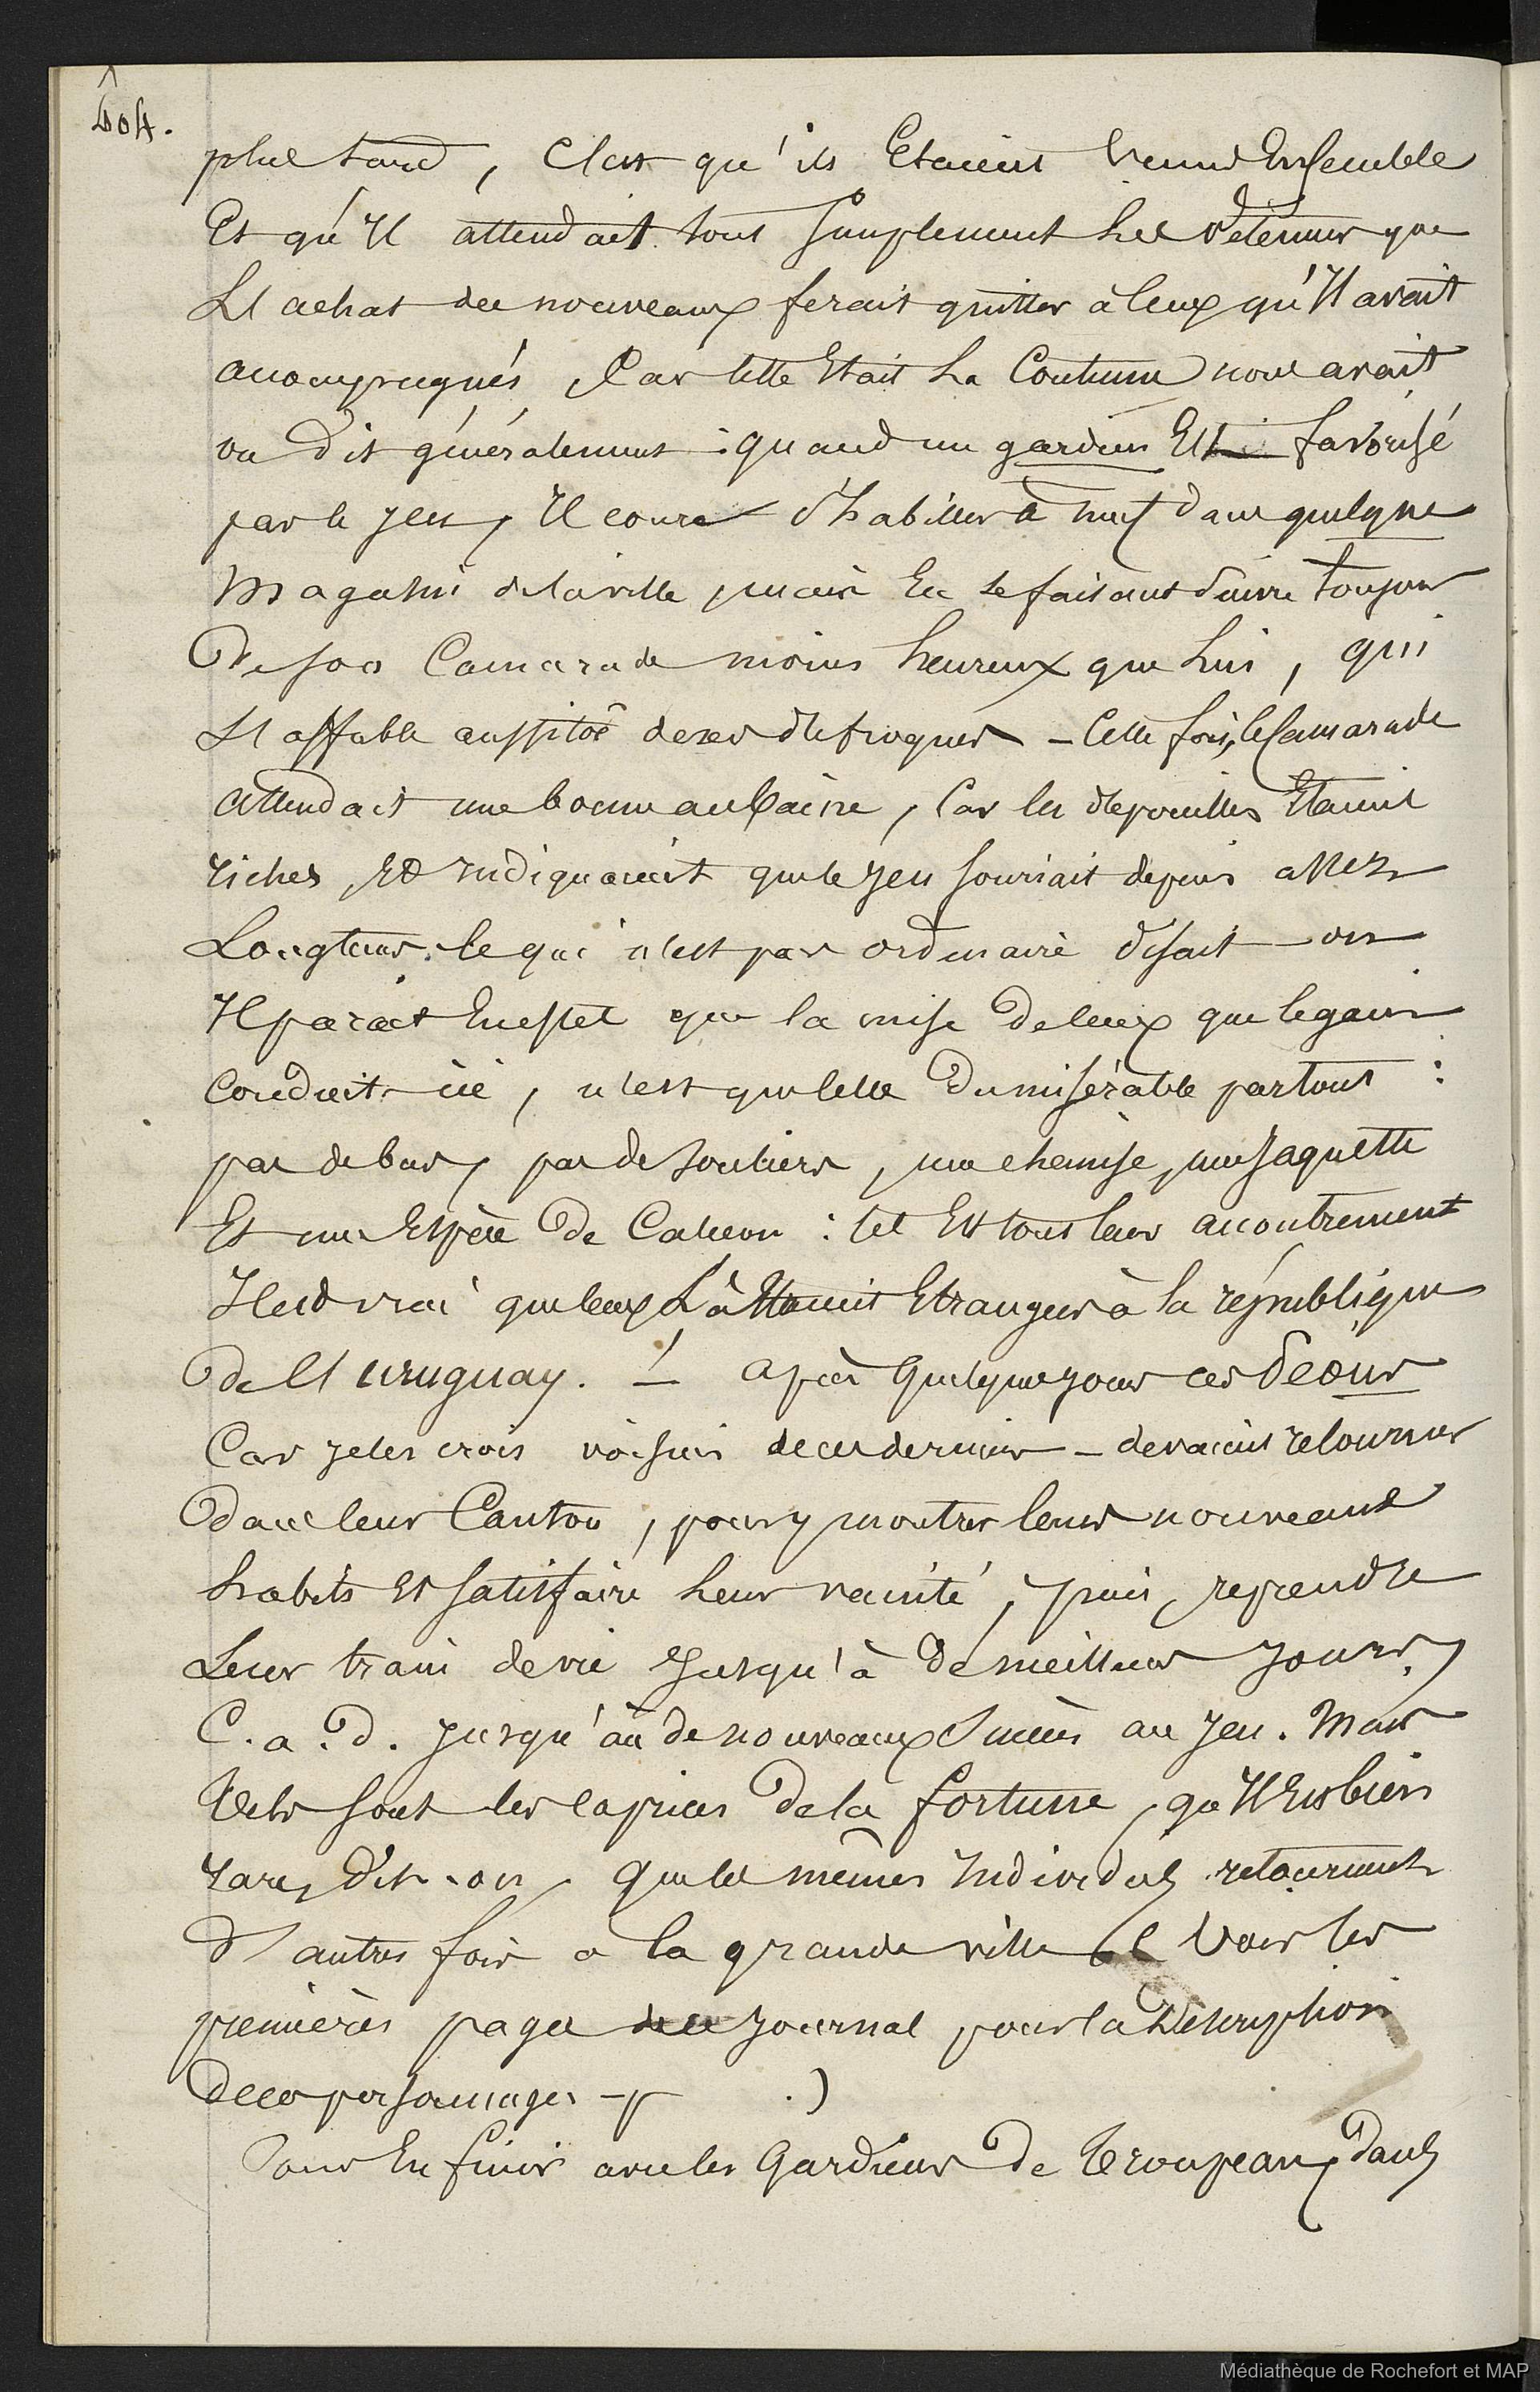 404.
plus tard, C'est qu'ils Etaient venus Ensemble
Et qu'Il attendait tout simplement les vêtemens que
L'achat des nouveaux ferait quitter à Ceux qu'Il avait
accompagnés, Car telle Etait la Coutume nous avait
on dit généralement : quand un gardien Est favorisé
par le Jeu, Il coure s'habiller à neuf dans quelque
Magasin de la ville, mais En se faisant suivre toujours
De son Camarade moins heureux que lui, qui
S'affuble aussitôt de ses défroques — Cette fois, le Camarade
attendait une bonne aubaine, Car les dépouilles Etaient
riches, Et Indiquaient que le Jeu souriait depuis assez
Longtems. Ce qui n'est pas ordinaire disait-on
Il parait En effet que la mise De Ceux que le gain
Conduit ici, n'est que Celle Du misérable partout :
pas de bas, pas de souliers, une chemise, une Jaquette
Et une Espèce De Caleçon : tel Est tout leur accoutrement
Il est vrai que Ceux Là Etaient Etrangers à la république
De L'uruguay. — après quelques Jours ces
Car Je les crois voisins de ces derniers — devaient retourner
Dans leur Canton, pour y montrer leurs nouveaux
habits Et satisfaire leur vanité, puis, reprendre
Leur train de vie Jusqu'à De meilleurs Jours,
C. a. D. Jusqu'à de nouveaux succès au Jeu. Mais
tels sont les caprices De la fortune, qu'Il Est bien
rare, Dit-on, que les mêmes Individus retournent
D'autres fois à la grande ville (Voir les
premières pages du Journal pour la Description
de ces personnages — p .)
Pour En finir avec les Gardiens De troupeaux Dans
Médiathèque de Rochefort et MAP